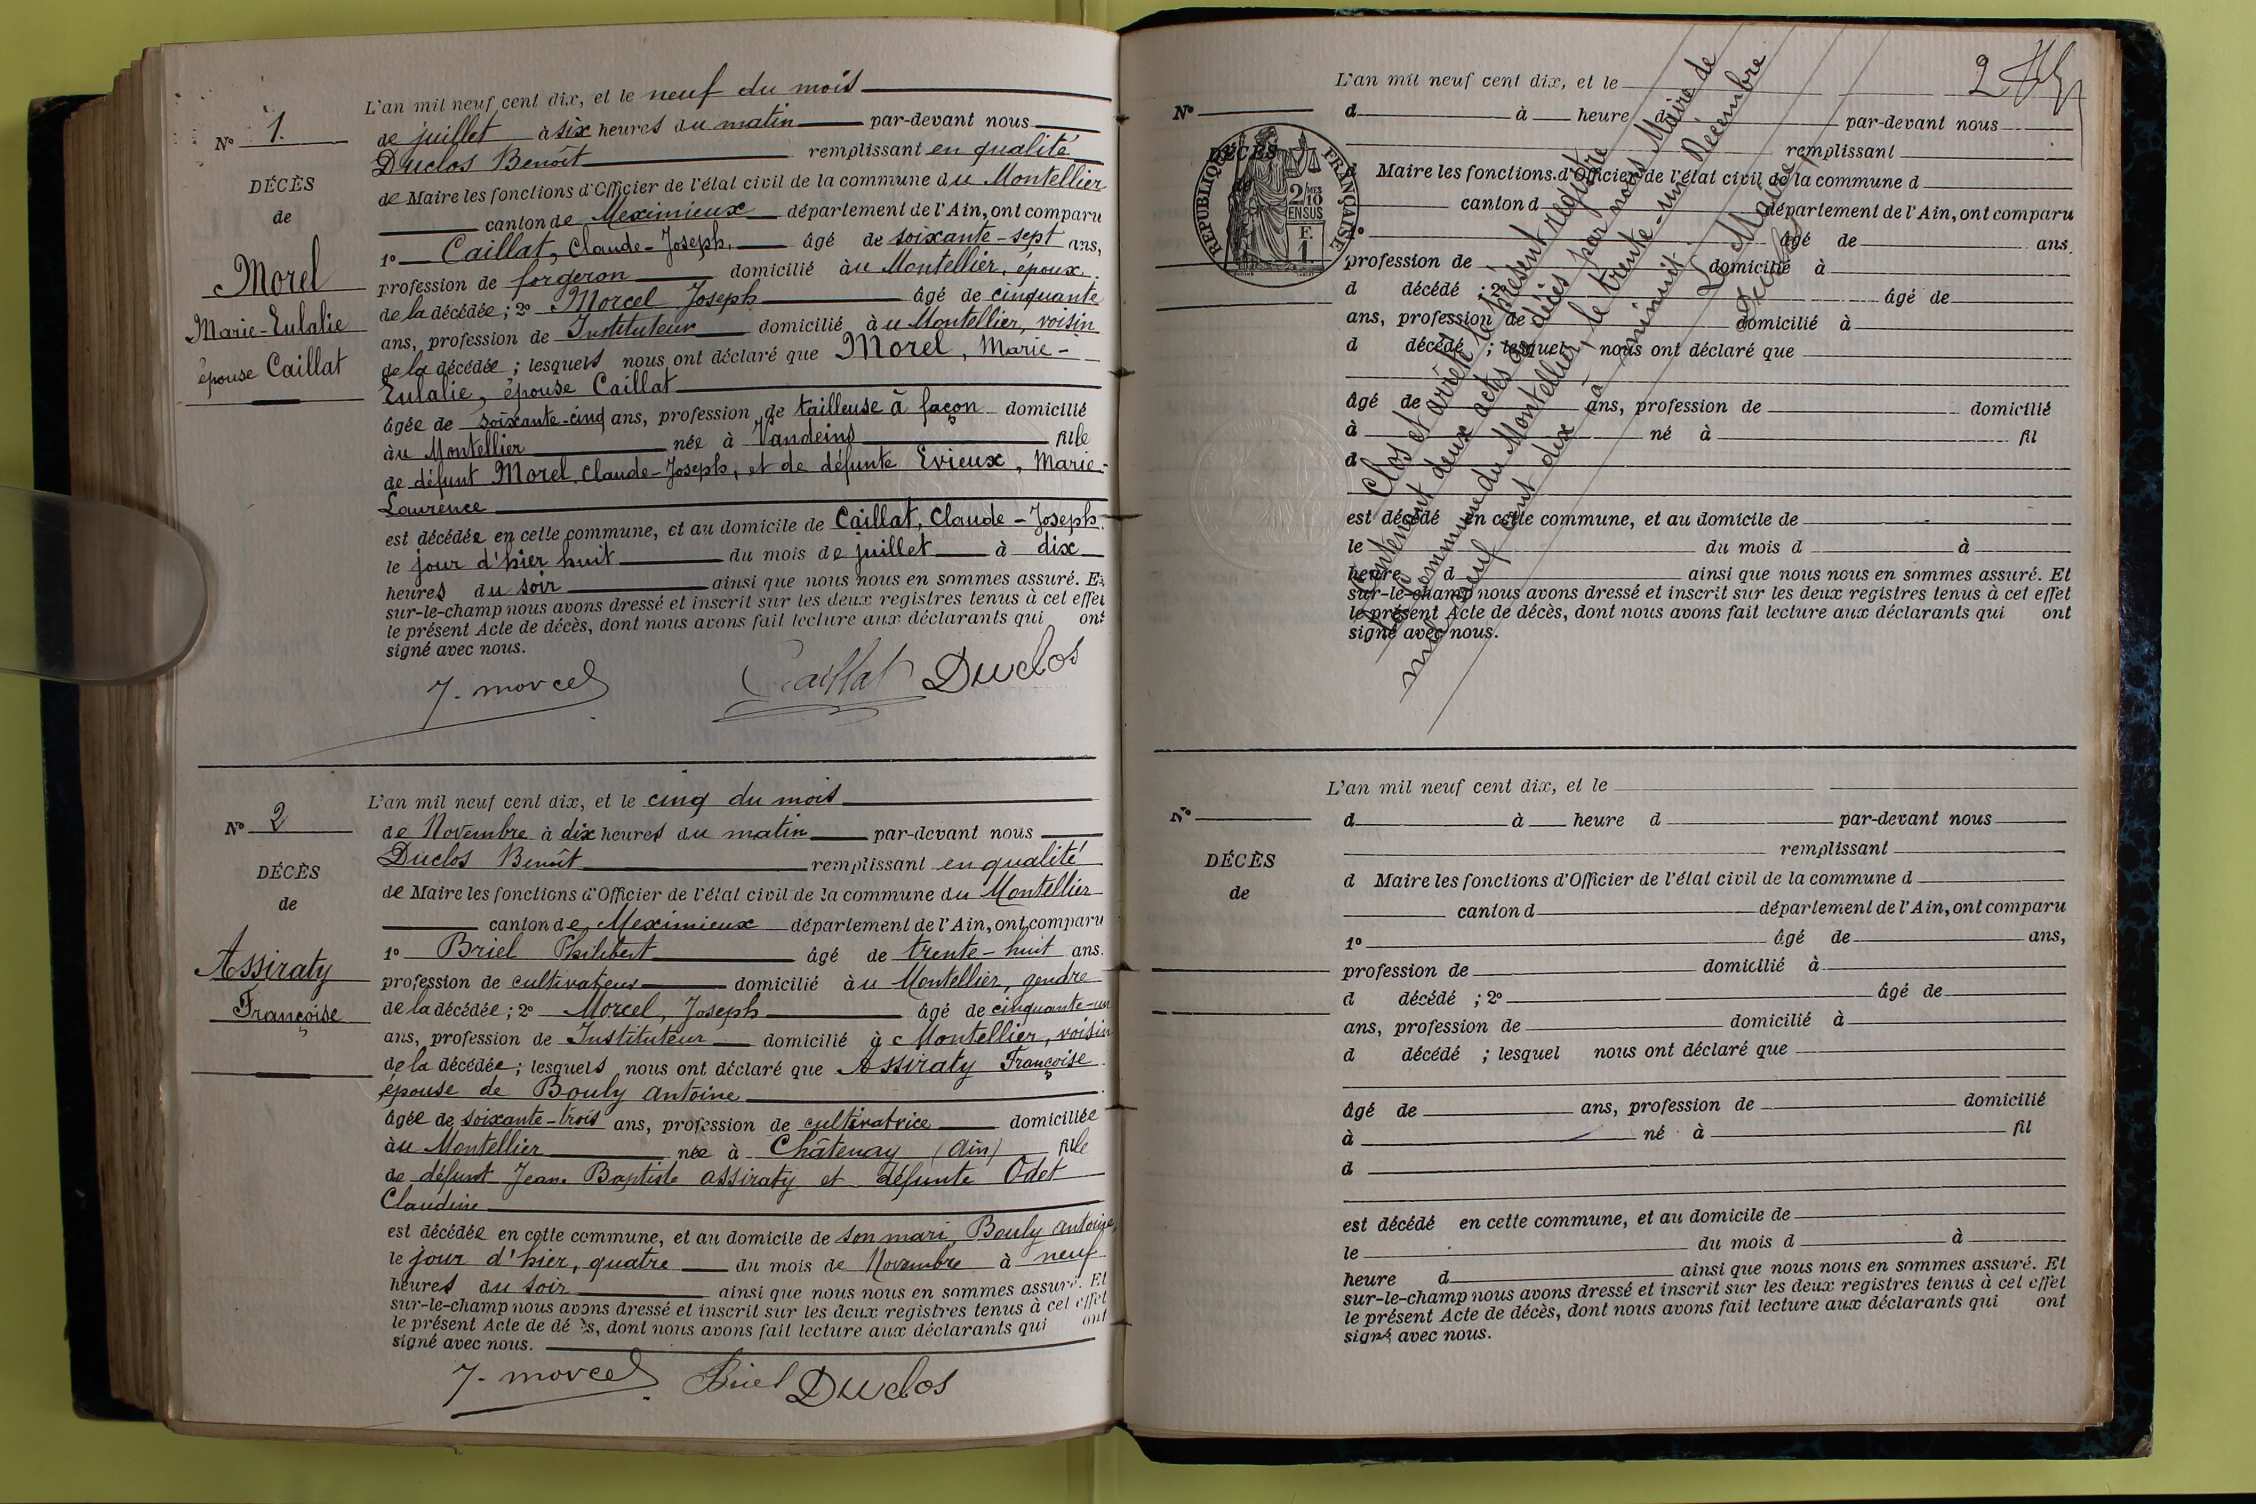 N° 1.
DÉCÈS
de
Morel
Marie-Eulalie
épouse Caillat
L'an mil neuf cent dix, et le neuf du mois
de juillet à six heures du matin par-devant nous
Duclos Benoît remplissant en qualité
de Maire les fonctions d'Officier de l'état civil de la commune du Montellier
canton de Meximieux département de l'Ain, ont comparu
1° Caillat, Claude-Joseph, âgé de soixante-sept ans,
profession de forgeron domicilié au Montellier, époux
de la décédée ; 2° Morcel Joseph âgé de cinquante
ans, profession de Instituteur domicilié au Montellier, voisin
de la décédée ; lesquels nous ont déclaré que Morel, Marie-
Eulalie, épouse Caillat
âgée de soixante-cinq ans, profession de tailleuse à façon domicilié
au Montellier née à Vandeins fille
de défunt Morel Claude-Joseph, et de défunte Evieux, Marie-
Laurence
est décédée en cette commune, et au domicile de Caillat, Claude-Joseph
le jour d'hier huit du mois de juillet à dix
heures du soir ainsi que nous nous en sommes assuré. Et
sur-le-champ nous avons dressé et inscrit sur les deux registres tenus à cet effet
le présent Acte de décès, dont nous avons fait lecture aux déclarants qui ont
signé avec nous.
J. morcel Caillat Duclos
N° 2
DÉCÈS
de
Assiraty
Françoise
L'an mil neuf cent dix, et le cinq du mois
de Novembre à dix heures du matin par-devant nous
Duclos Benoît remplissant en qualité
de Maire les fonctions d'Officier de l'état civil de la commune du Montellier
canton de Meximieux département de l'Ain, ont comparu
1° Briel Philibert âgé de trente-huit ans.
profession de cultivateur domicilié au Montellier, gendre
de la décédée ; 2° Morcel, Joseph âgé de cinquante-un
ans, profession de Instituteur domicilié à Montellier, voisin
de la décédée ; lesquels nous ont déclaré que Assiraty Françoise
épouse de Bouly Antoine
âgée de soixante-trois ans, profession de cultivatrice domiciliée
au Montellier née à Châtenay (Ain) fille
de défunt Jean Baptiste Assiraty et défunte Odet
Claudine
est décédée en cette commune, et au domicile de son mari, Bouly Antoine,
le jour d'hier, quatre du mois de Novembre à neuf
heures du soir ainsi que nous nous en sommes assuré. Et
sur-le-champ nous avons dressé et inscrit sur les deux registres tenus à cet effet
le présent Acte de décès, dont nous avons fait lecture aux déclarants qui ont
signé avec nous.
J. morcel Briel Duclos
2
N°
DÉCÈS
RÉPUBLIQUE FRANÇAISE
2/10 MES
EN SUS
F.
1
L'an mil neuf cent dix, et le
d à heure d par-devant nous
remplissant
d Maire les fonctions d'Officier de l'état civil de la commune d
canton d département de l'Ain, ont comparu
1° âgé de ans
profession de domicilié à
d décédé ; 2° âgé de
ans, profession de domicilié à
d décédé ; lesquel nous ont déclaré que
âgé de ans, profession de domicilié
à né à fil
d
est décédé en cette commune, et au domicile de
le du mois d à
heure d ainsi que nous nous en sommes assuré. Et
sur-le-champ nous avons dressé et inscrit sur les deux registres tenus à cet effet
le présent Acte de décès, dont nous avons fait lecture aux déclarants qui ont
signé avec nous.
Clos et arrêté le présent registre
contenant deux actes de décès par nous Maire de
la commune du Montellier, le trente-un Décembre
mil neuf cent dix à minuit
Le Maire,
Duclos
N°
DÉCÈS
de
L'an mil neuf cent dix, et le
d à heure d par-devant nous
remplissant
d Maire les fonctions d'Officier de l'état civil de la commune d
canton d département de l'Ain, ont comparu
1° âgé de ans,
profession de domicilié à
d décédé ; 2° âgé de
ans, profession de domicilié à
d décédé ; lesquel nous ont déclaré que
âgé de ans, profession de domicilié
à né à fil
d
est décédé en cette commune, et au domicile de
le du mois d à
heure d ainsi que nous nous en sommes assuré. Et
sur-le-champ nous avons dressé et inscrit sur les deux registres tenus à cet effet
le présent Acte de décès, dont nous avons fait lecture aux déclarants qui ont
signé avec nous.